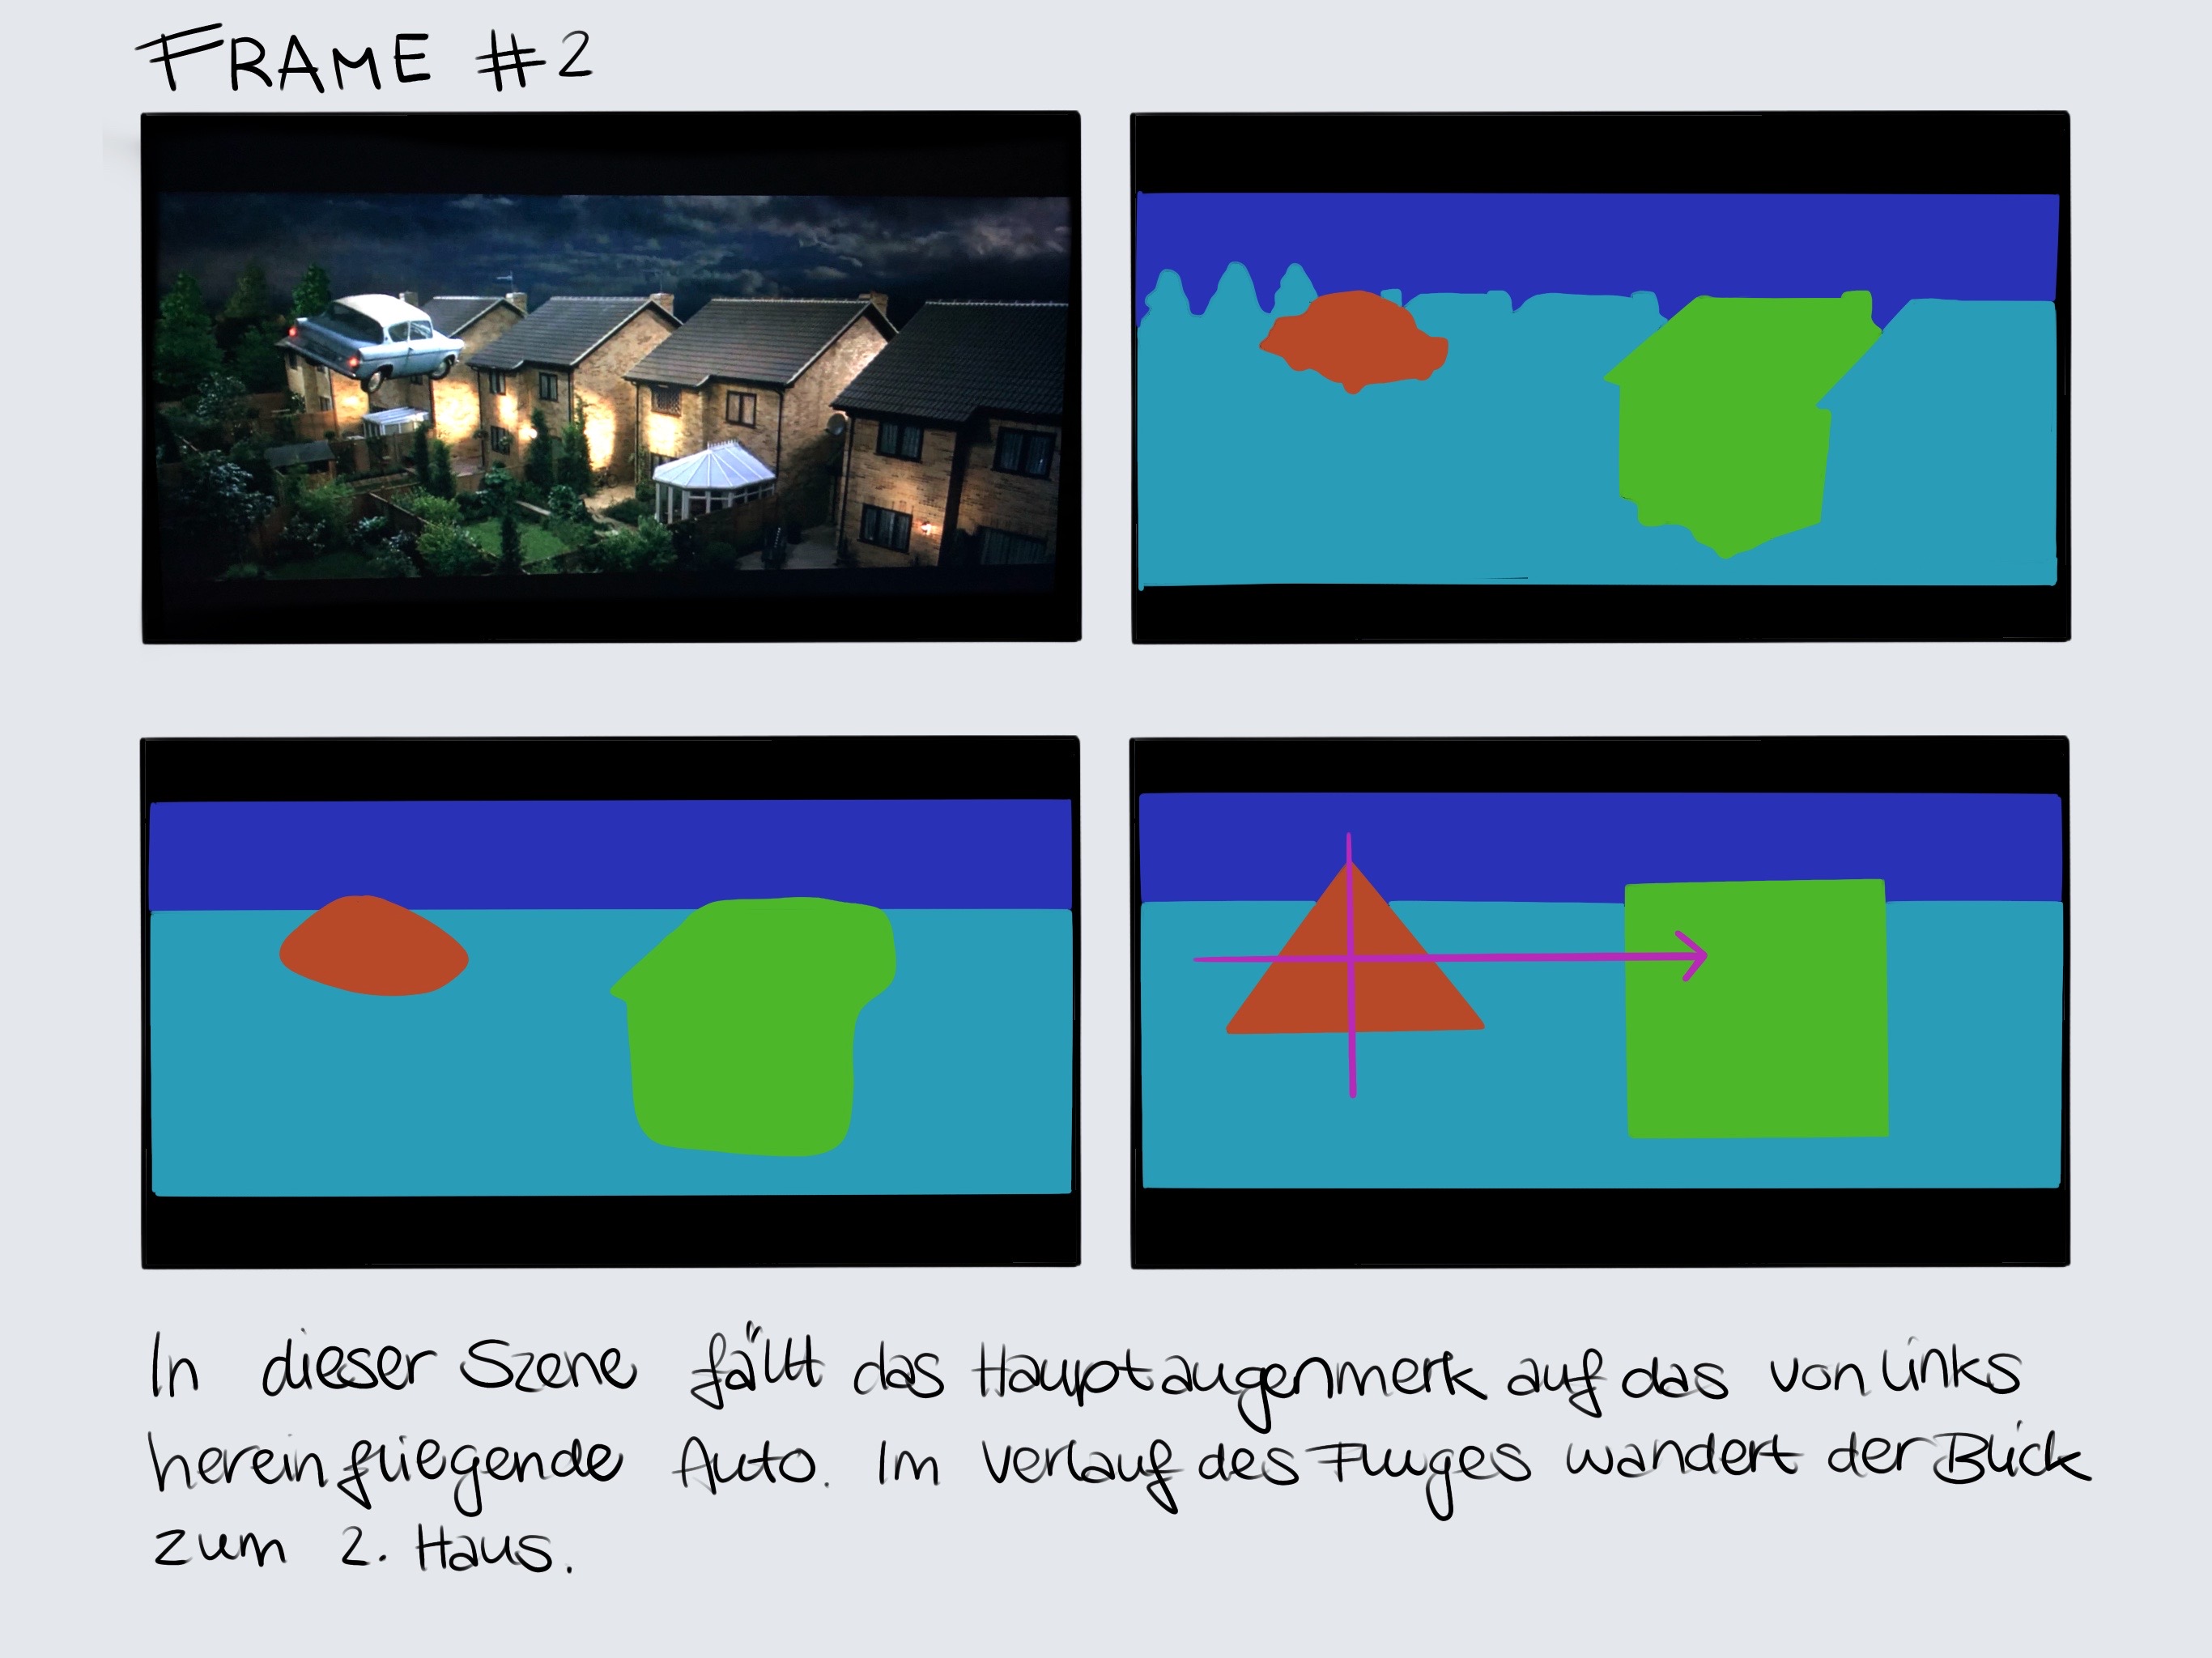 FRAME #2
In dieser Szene fällt das Hauptaugenmerk auf das von links
hereinfliegende Auto. Im Verlauf des Fluges wandert der Blick
zum 2. Haus.